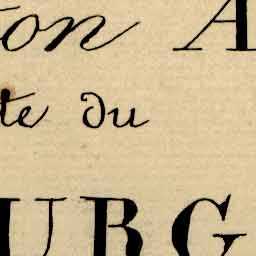 ton A
te du
URG